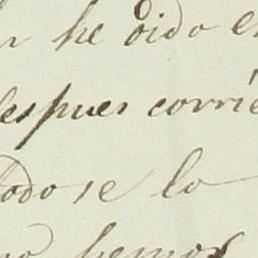 he oido e
despues corrie
todo se lo
no hemos